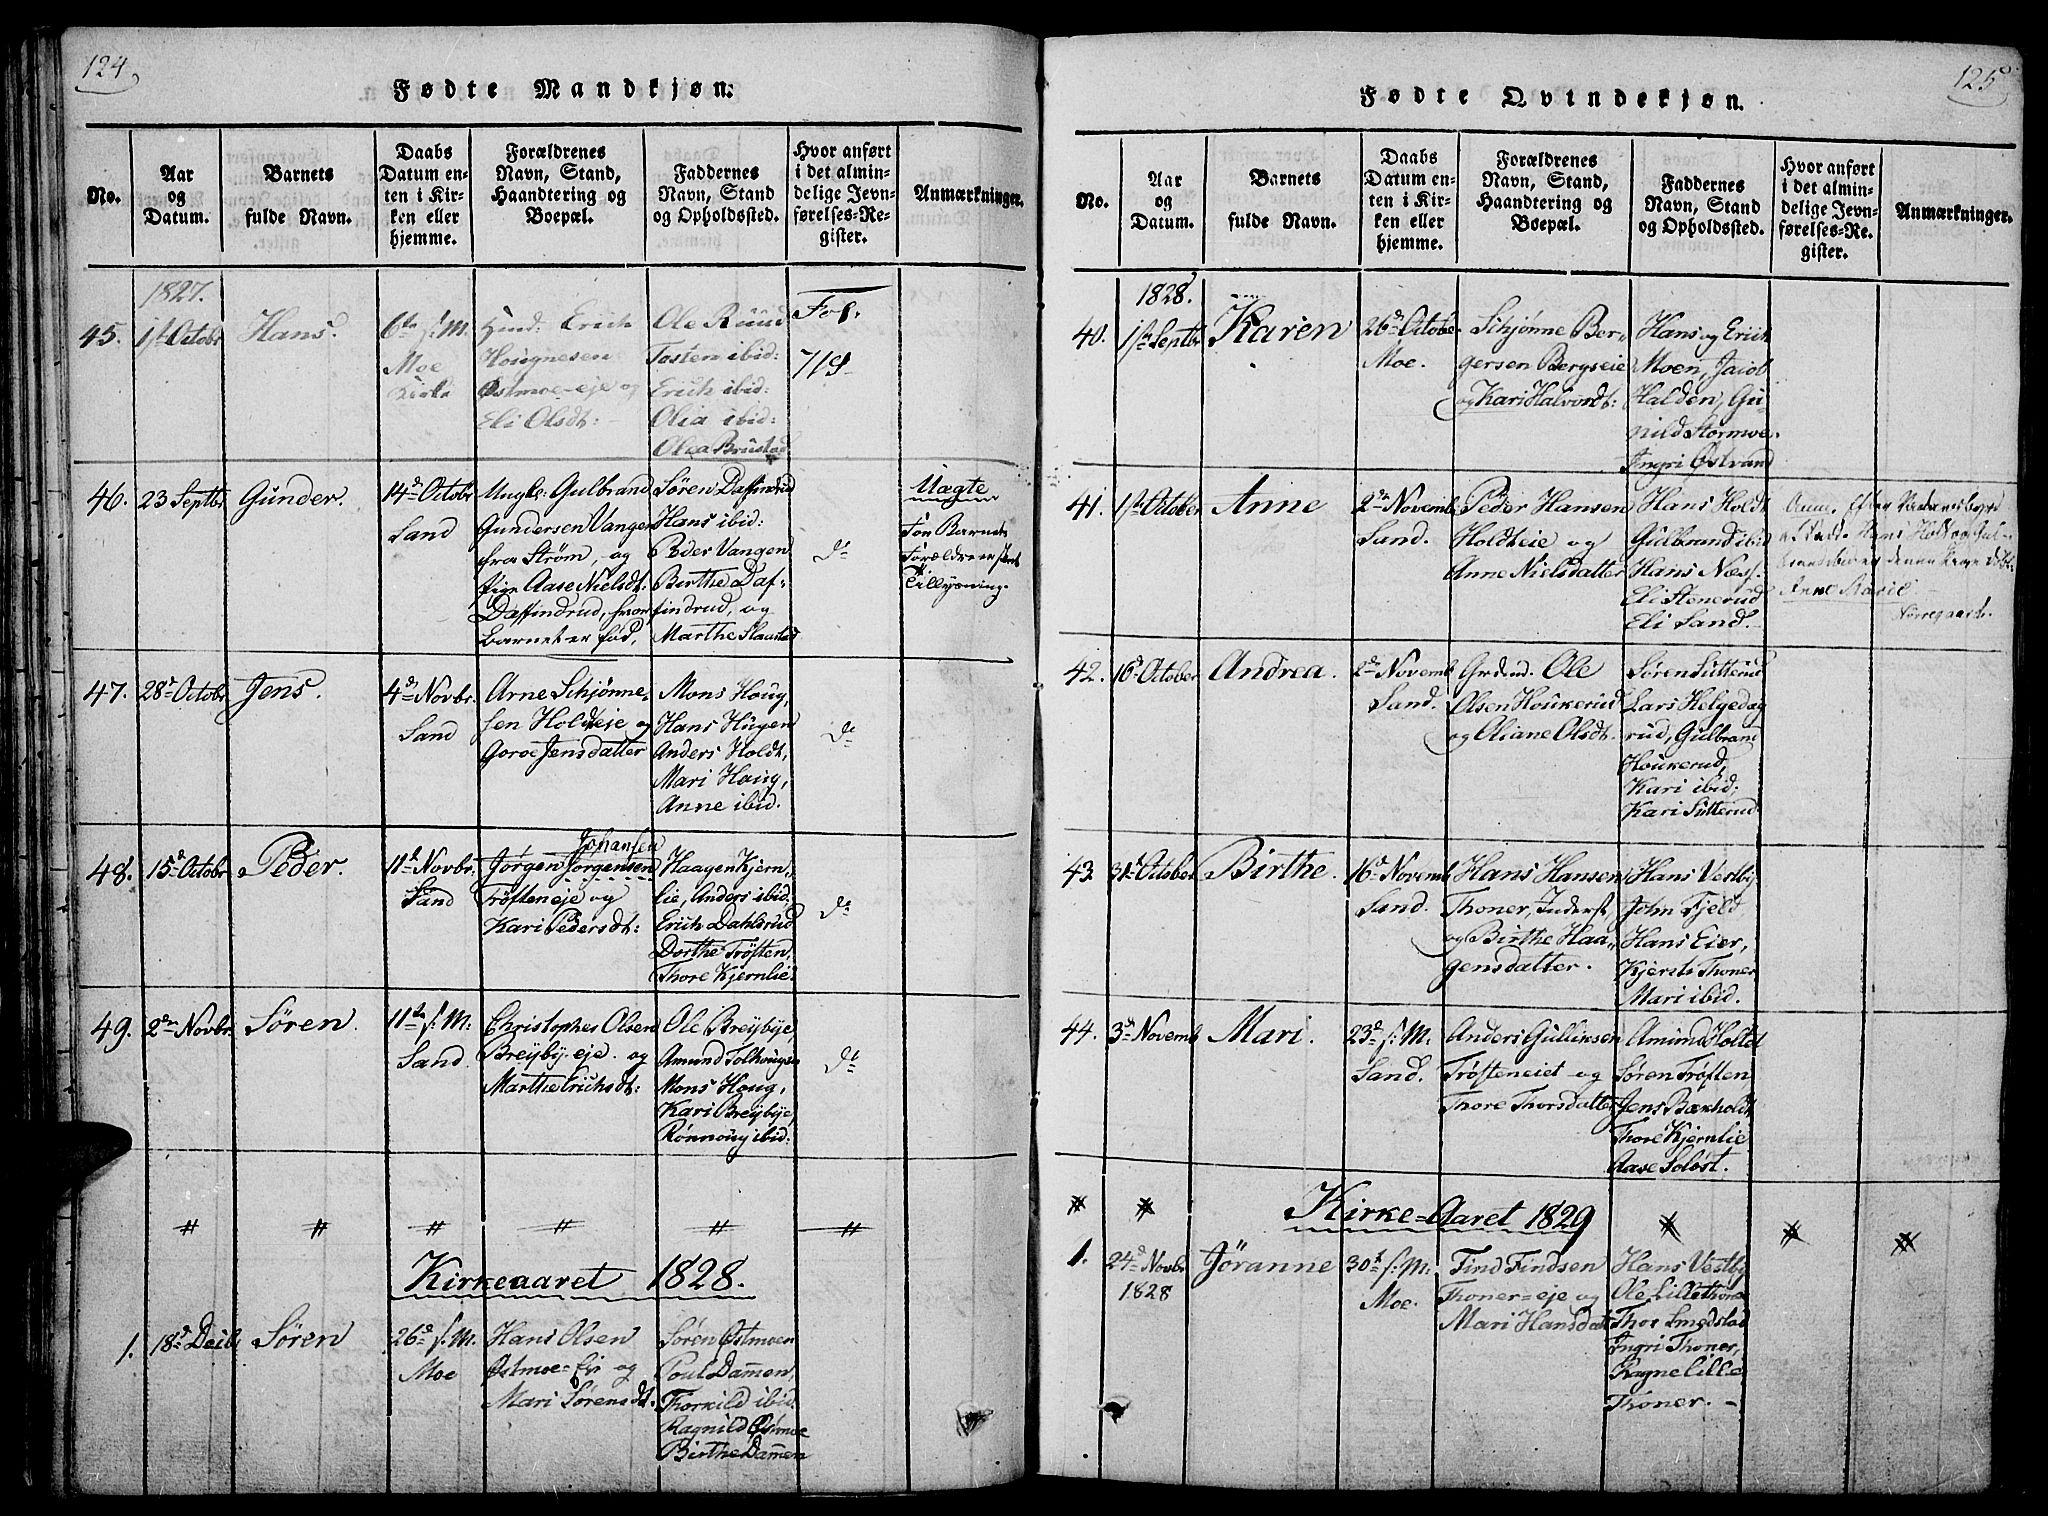 124
Fødte Mandkjøn.
No.
Aar
og
Datum.
Barnets
fulde Navn.
Daabs
Datum en-
ten i Kir-
ken eller
hjemme.
Forældrenes
Navn, Stand,
Haandtering og
Boepæl.
Faddernes
Navn, Stand
og Opholdssted.
Hvor anført
i det almin-
delige Jevn-
førelses-Re-
gister.
Anmærkninger.
1827.
45.
1st Octobr
Hans.
6te s: M.
Moe
Kirke
Huusd: Erich
Hougnesen
Østmoe-eje og
Eli Olsdt:
Ole Ruud
Tosten ibid:
Erich ibid:
Olia ibid:
Olea Brustad
Fol.
719
46.
23 Septbr
Gunder.
14d Octobr
Sand
Ungk: Gulbrand
Gundersen Vangen
fra Strøm, og
Pige Aase Nielsdt:
Daffindrud, hvor
barnet er fød.
Søren Daffindrud
Hans ibid:
Peder Vangen
Berthe Daf-
findrud, og
Marthe Slaastad
do
Uægte
Før Barnets
Forældre er skeet
Tillysning.
47.
28d Octobr
Jens.
4de Novbr.
Sand
Arne Schjønne-
sen Holdteje og
Goroe Jensdatter
Mons Houg,
Hans Hugen
Anders Holdt,
Mari Haug,
Anne ibid.
do
48.
15d Octobr
Peder.
11te Novbr.
Sand
Johansen
Jørgen Jørgensen
Trøften eje og
Kari Pedersdt:
Haagen Kjern-
lie, Anders ibid,
Erich Dahlsrud
Dorthe Trøften,
Thore Kjernlie
do
49.
2den Novbr.
Søren.
11te s: M:
Sand
Christopher Olsen
Breyby-eje og
Marthe Erichsdt:
Ole Breybye,
Amund Tolhougen
Mons Houg,
Kari Breybye,
Rønnoug ibid:
do
Kirkeaaret 1828.
1.
18d Decb
Søren
26d s. M.
Moe
Hans Olsen
Østmoe-Ejr og
Mari Sørensdt.
Søren Østmoen
Poul Dammen,
Thorkild ibid
Ragnild Østmoe
Birthe Dammen
125
Fødte Qvindekjøn.
No.
Aar
og
Datum.
Barnets
fulde Navn.
Daabs
Datum en-
ten i Kir-
ken eller
hjemme.
Forældrenes
Navn, Stand,
Haandtering og
Boepæl.
Faddernes
Navn, Stand
og Opholdssted.
Hvor anført
i det almin-
delige Jevn-
førelses-Re-
gister.
Anmærkninger.
1828.
40.
1ste Septbr
Karen
26d Octobe.
Moe.
Schjønne Ber-
gersen Bergseie
og Kari Halvordt:
Hans og Erich
Moen, Jacob
Halden, Gu-
nild Stormoe,
Ingri Østvand
41.
1ste October
Anne
2den Novemb
Sand.
Peder Hansen
Holdteie og
Anne Nielsdatter
Hans Holdt
Gulbrand ibid
Hans Næss.
Eli Stenerud
Eli Sand.
Anne Marie
Nørregaard.
42.
16d October
Andrea.
2den Novemb
Sand.
Grdmd. Ole
Olsen Houkerud
og Oliane Olsdt.
Søren Sutterud
Lars Helgedag
rud, Gulbrand
Houkerud,
Kari ibid;
Kari Sutterud
43
31d October
Birthe.
16d Novemb
Sand.
Hans Hansen
Thoner, Inderst,
og Birthe Haa-
gensdatter.
Hans Vestby
John Fjeld
Hans Eier,
Kjersti Thoner
Mari ibid.
44.
3d Novemb
Mari.
23d s: M.
Sand.
Anders Gulliksen
Trøfteneiet og
Thore Thorsdatter
Amund Holtet
Søren Trøften
Jens Bækholdt
Thore Kjernlie
Aase Soløst.
Kirke-Aaret 1829
1.
24d Novbr
1828
Jøranne
30t s: M.
Moe.
Find Findsen
Thoner-eje og
Mari Hansdat
Hans Vestby
Ole Lillethoner
Thor Smedstad
Ingri Thoner,
Ragne Lille
Thoner.